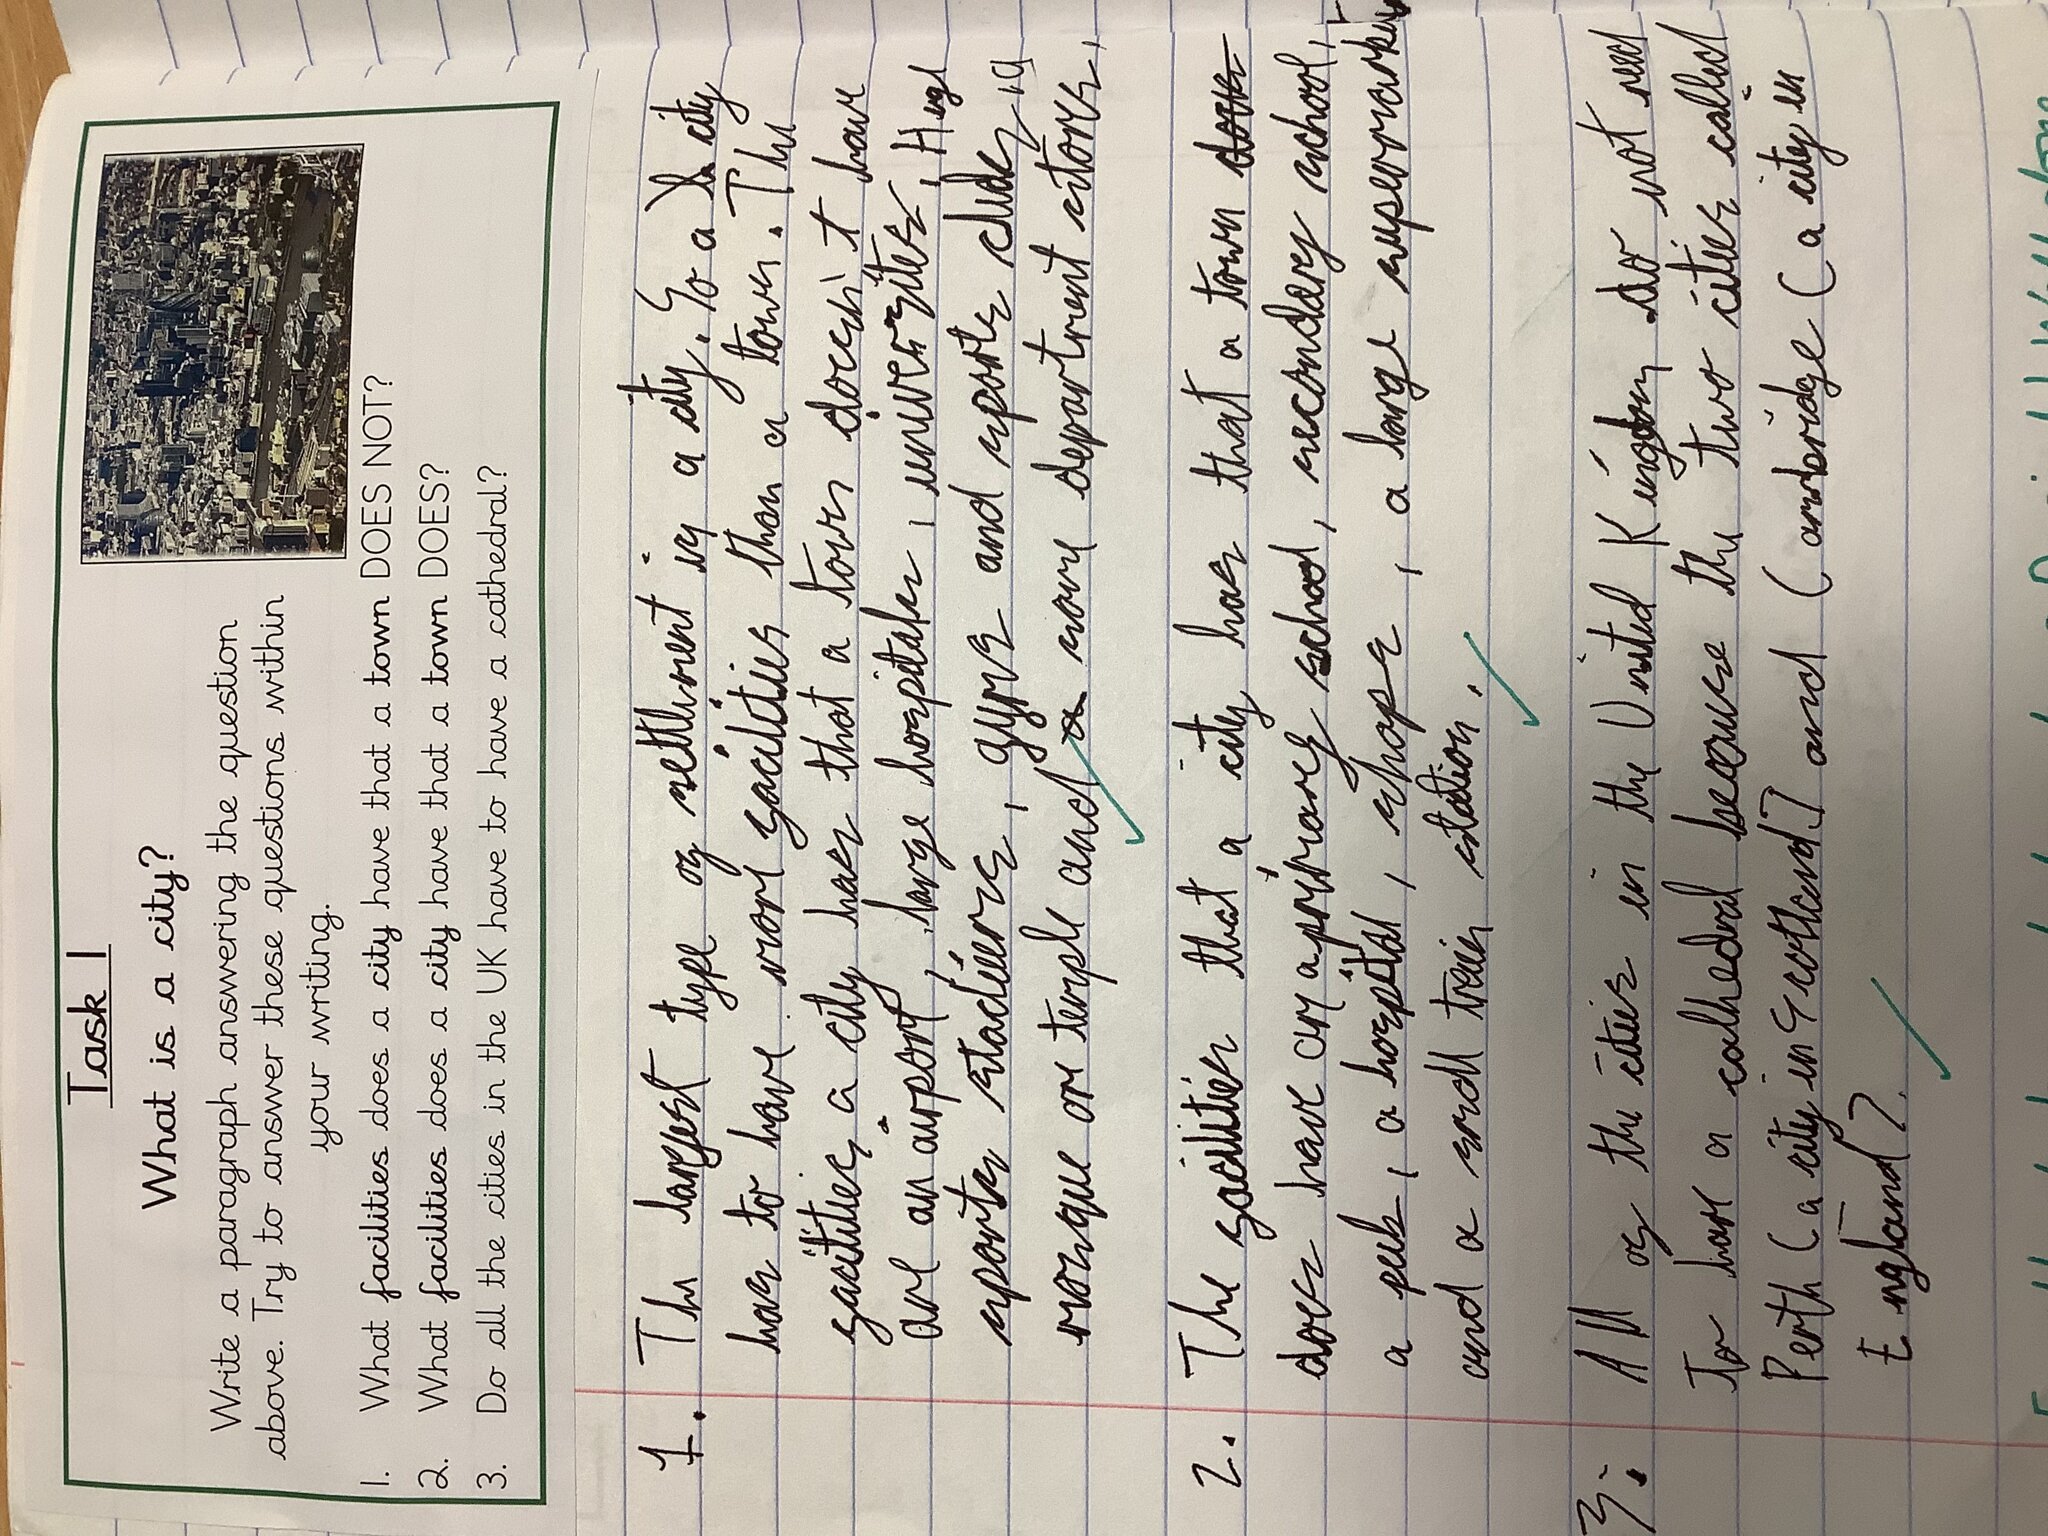 Task 1
What is a city?
Write a paragraph answering the question
above. Try to answer these questions within
your writing.
1. What facilities does a city have that a town DOES NOT?
2. What facilities does a city have that a town DOES?
3. Do all the cities in the UK have to have a cathedral?
1. The largest type of settlement is a city. So a city
has to have more facilities than a town. The
facilities a city has that a town doesn't have
are an airport, large hospitals, universites, Huge
sports stadiums, gyms and sports clubs, a
mosque or temple and a some department stores.
2. The facilities that a city has that a town does
does have are a primary school, secondary school,
a pub, a hospital, shops, a large supermarket
and a small train station.
3. All of the cities in the United Kingdom do not need
to have a cathedral because the two cities called
Perth (a city in Scotland) and Cambridge (a city in
England).
Well done